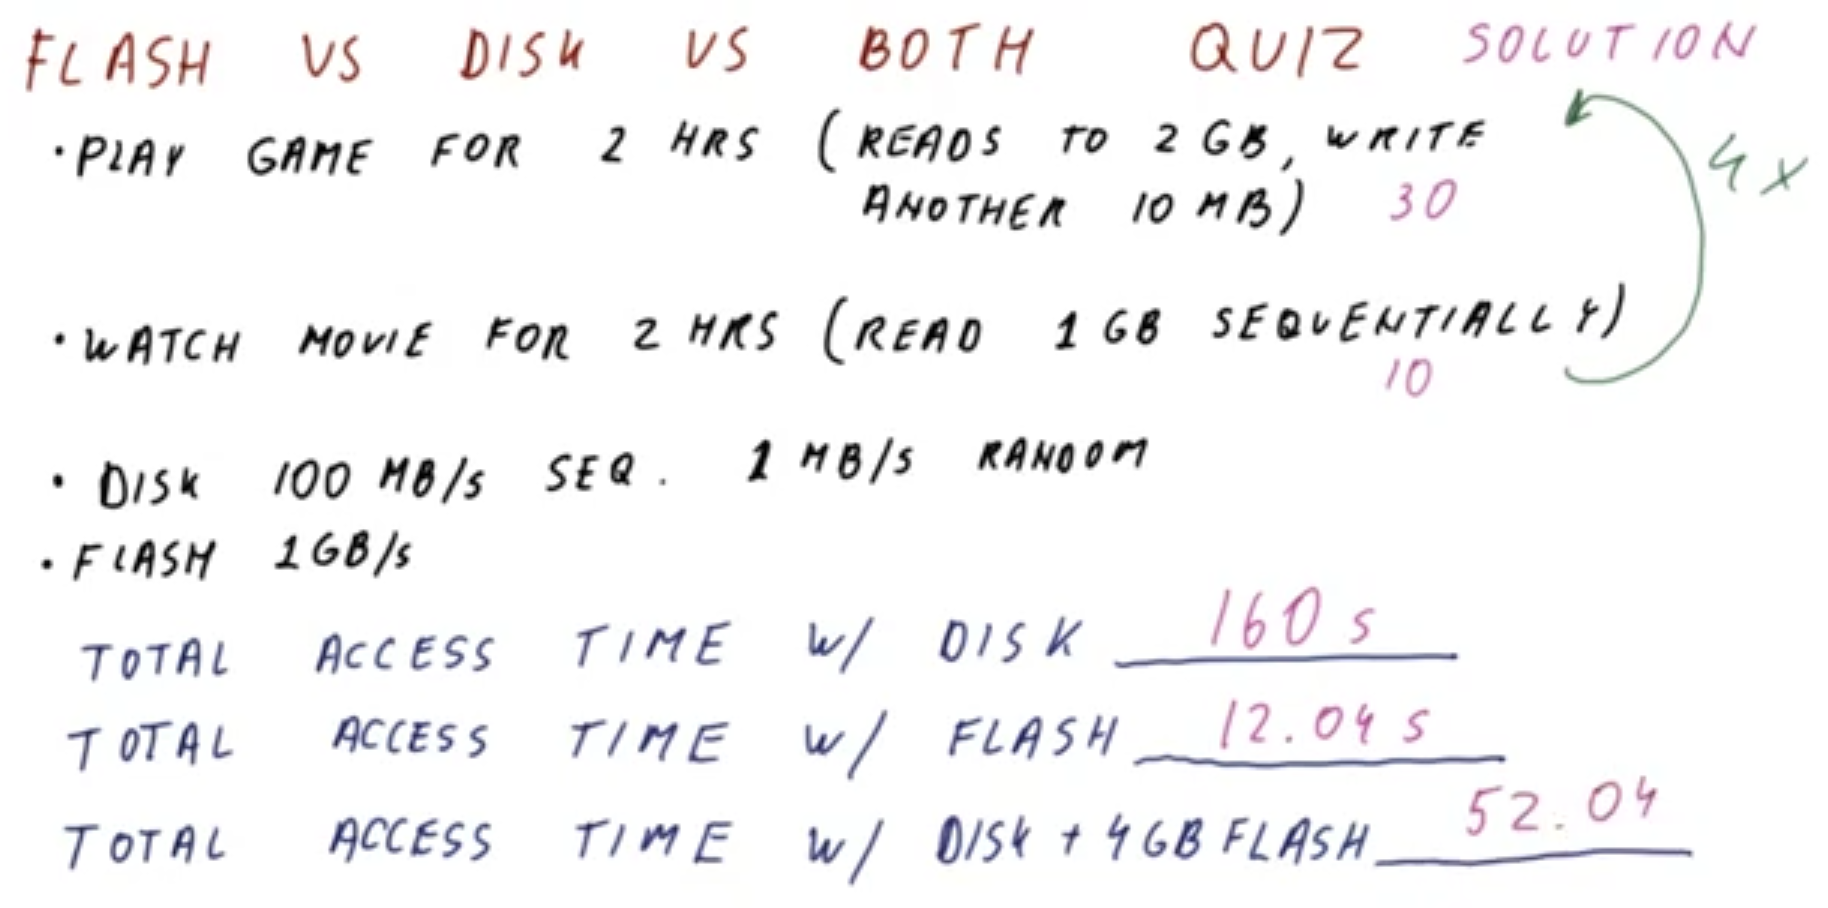 FLASH VS DISK VS BOTH QUIZ SOLUTION
• PLAY GAME FOR 2 HRS (READS TO 2 GB, WRITE
ANOTHER 10 MB) 30
4x
• WATCH MOVIE FOR 2 HRS (READ 1 GB SEQUENTIALLY)
10
• DISK 100 MB/s SEQ. 1 MB/s RANDOM
• FLASH 1GB/s
TOTAL ACCESS TIME W/ DISK 160 s
TOTAL ACCESS TIME W/ FLASH 12.04 s
TOTAL ACCESS TIME W/ DISK + 4GB FLASH 52.04